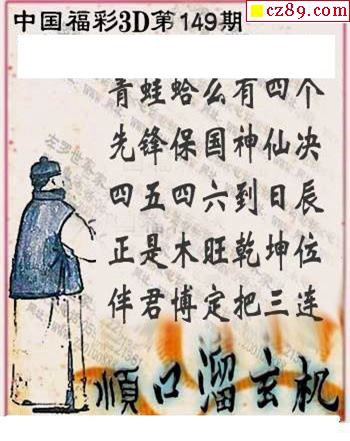 cz89.com
中国福彩3D第149期
青蛙蛤么有四个
先锋保国神仙决
四五四六到日辰
正是木旺乾坤位
伴君博定把三连
順口溜玄机